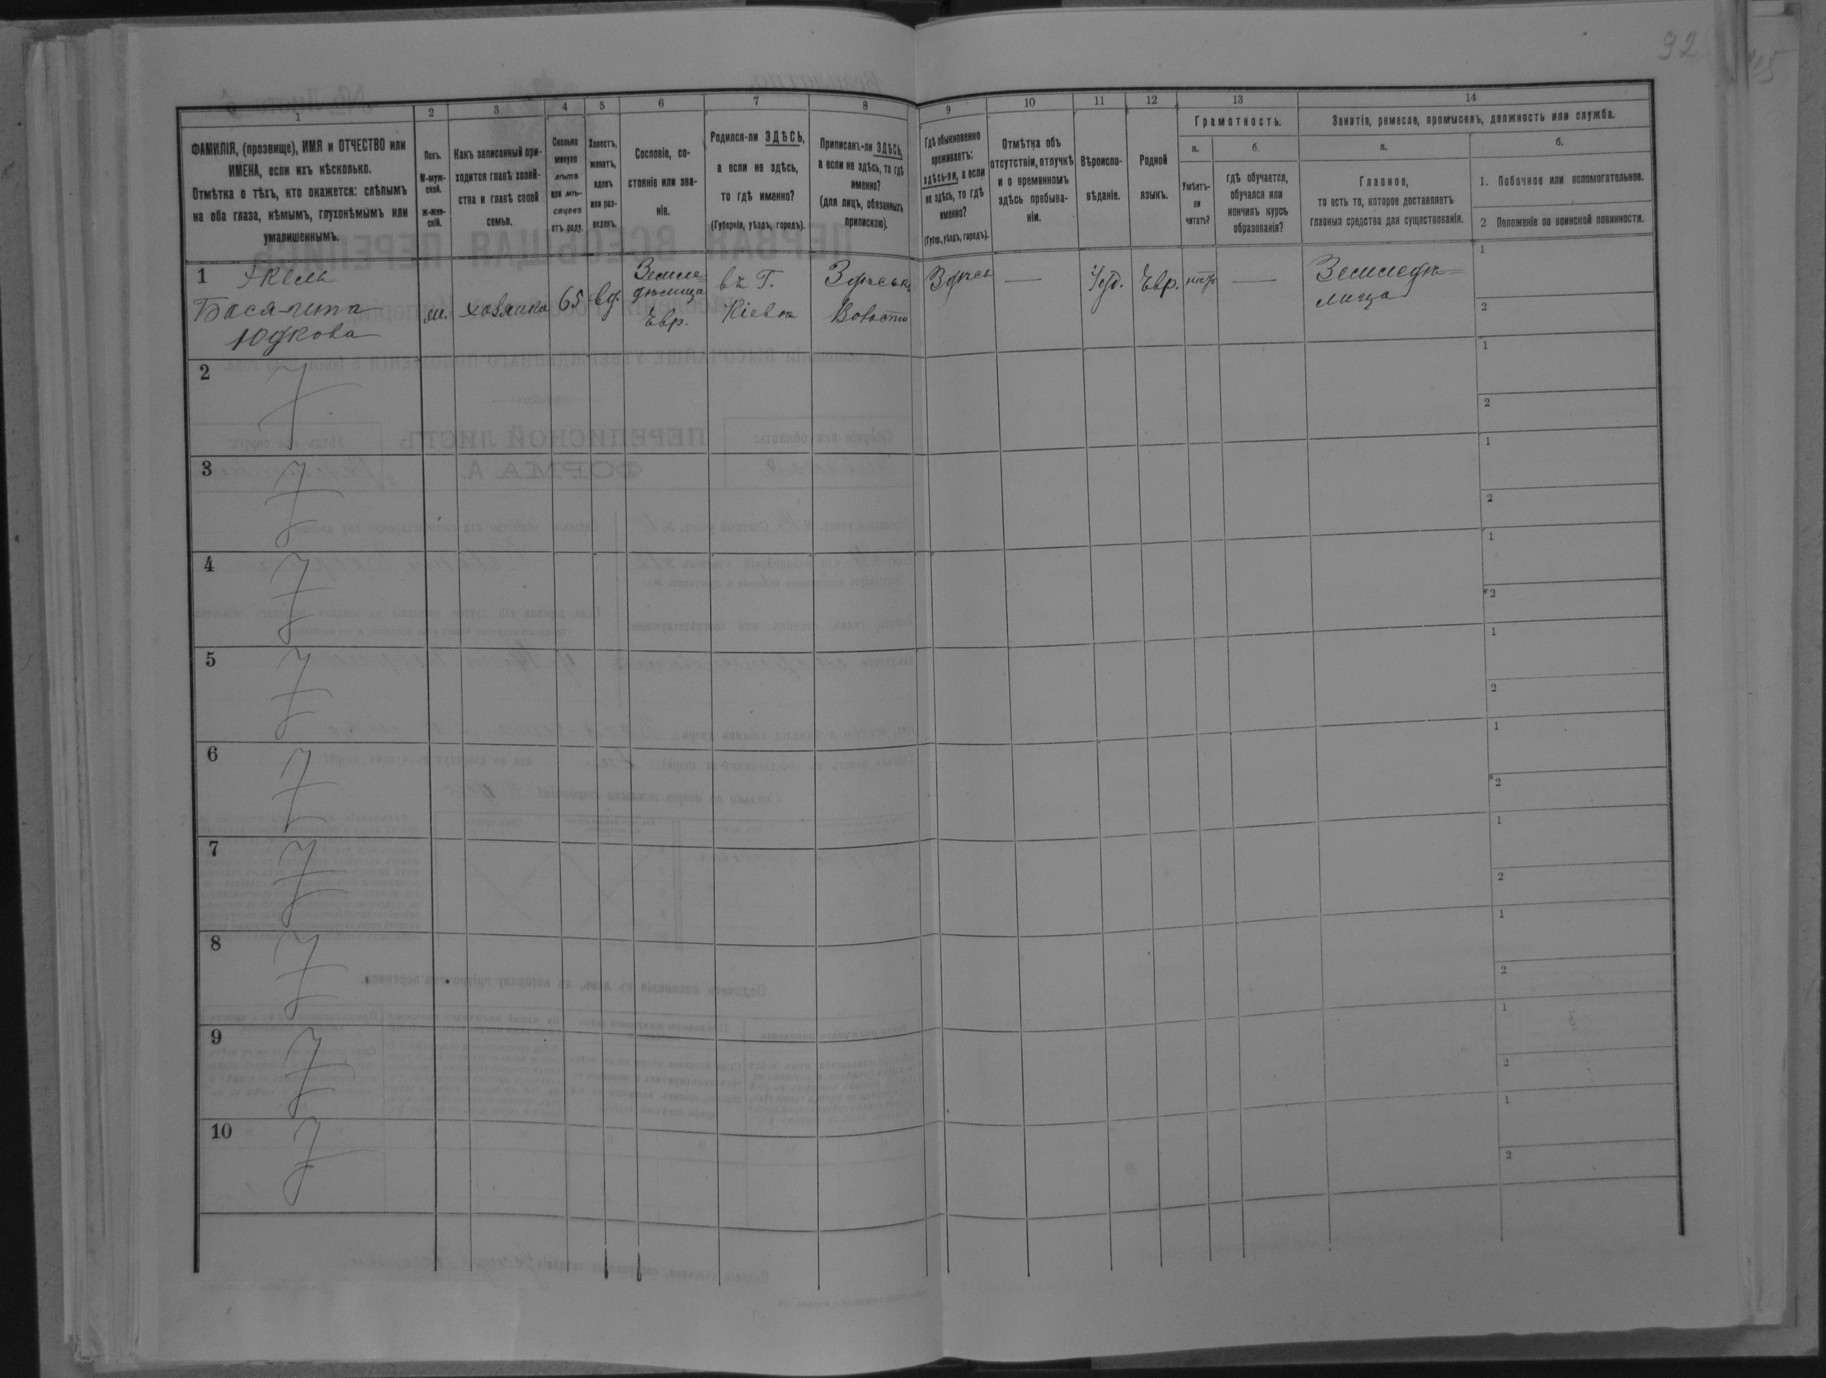 92
1
2
3
4
5
6
7
8
9
10
11
12
13
14
ФАМИЛІЯ, (прозвище), ИМЯ и ОТЧЕСТВО или
ИМЕНА, если ихъ нѣсколько.
Отмѣтка о тѣхъ, кто окажется: слѣпымъ
на оба глаза, нѣмымъ, глухонѣмымъ или
умалишеннымъ.
Полъ.
М-муж-
ской.
Ж-жен-
скій.
Какъ записанный при-
ходится главѣ хозяй-
ства и главѣ своей
семьи.
Сколько
минуло
лѣтъ
или мѣ-
сяцевъ
отъ роду.
Холостъ,
женатъ,
вдовъ
или раз-
веденъ.
Сословіе, со-
стояніе или зва-
ніе.
Родился-ли ЗДѢСЬ,
а если не здѣсь,
то гдѣ именно?
(Губернія, уѣздъ, городъ).
Приписанъ-ли ЗДѢСЬ,
а если не здѣсь, то гдѣ
именно?
(для лицъ, обязанныхъ
припискою).
Гдѣ обыкновенно
проживаетъ:
здѣсь-ли, а если
не здѣсь, то гдѣ
именно?
(Губер., уѣздъ, городъ).
Отмѣтка объ
отсутствіи, отлучкѣ
и о временномъ
здѣсь пребыва-
ніи.
Вѣроиспо-
вѣданіе.
Родной
языкъ.
Грамотность.
а.
Умѣетъ-
ли
читать?
б.
гдѣ обучается,
обучался или
кончилъ курсъ
образованія?
Занятія, ремесло, промыселъ, должность или служба.
а.
Главное,
то есть то, которое доставляетъ
главныя средства для существованія.
б.
1. Побочное или вспомогательное.
2 Положеніе по воинской повинности.
1
Юдкова
хозяйка
65
вд.
Земле
дѣлица
Евр.
въ Г.
Кіевѣ
Волости
Здѣсь
—
Іуд.
Евр.
нѣтъ
—
Земледѣ=
лица
1
2
2
1
2
3
1
2
4
1
2
5
1
2
6
1
2
7
1
2
8
1
2
9
1
2
10
1
2